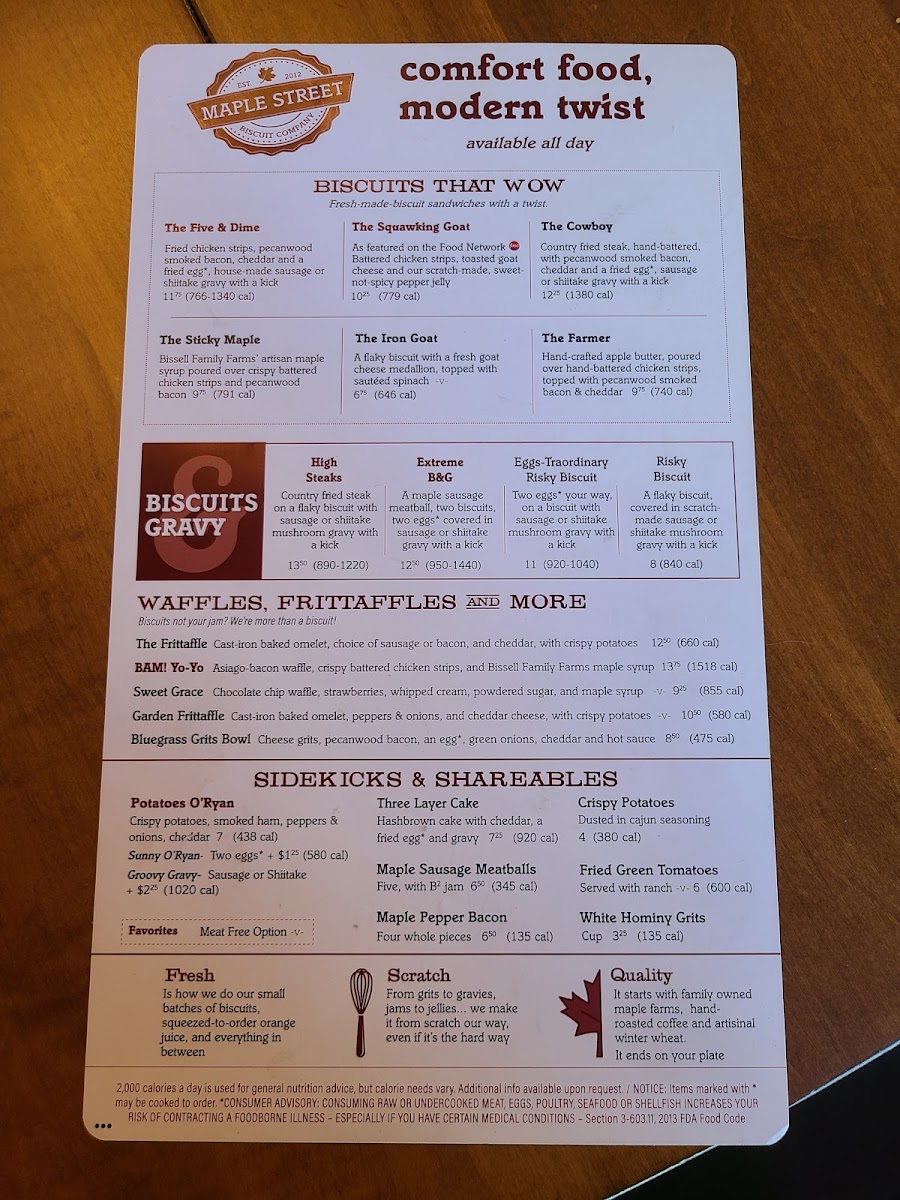 EST. 2012
MAPLE STREET
BISCUIT COMPANY
comfort food,
modern twist
available all day
BISCUITS THAT WOW
Fresh-made-biscuit sandwiches with a twist.
The Five & Dime
Fried chicken strips, pecanwood
smoked bacon, cheddar and a
fried egg*, house-made sausage or
shiitake gravy with a kick
11⁷⁵ (766-1340 cal)
The Squawking Goat
As featured on the Food Network
Battered chicken strips, toasted goat
cheese and our scratch-made, sweet-
not-spicy pepper jelly
10²⁵ (779 cal)
The Cowboy
Country fried steak, hand-battered,
with pecanwood smoked bacon,
cheddar and a fried egg*, sausage
or shiitake gravy with a kick
12²⁵ (1380 cal)
The Sticky Maple
Bissell Family Farms' artisan maple
syrup poured over crispy battered
chicken strips and pecanwood
bacon 9⁷⁵ (791 cal)
The Iron Goat
A flaky biscuit with a fresh goat
cheese medallion, topped with
sautéed spinach -v-
6⁷⁵ (646 cal)
The Farmer
Hand-crafted apple butter, poured
over hand-battered chicken strips,
topped with pecanwood smoked
bacon & cheddar 9⁷⁵ (740 cal)
&
BISCUITS
GRAVY
High
Steaks
Country fried steak
on a flaky biscuit with
sausage or shiitake
mushroom gravy with
a kick
13⁵⁰ (890-1220)
Extreme
B&G
A maple sausage
meatball, two biscuits,
two eggs* covered in
sausage or shiitake
gravy with a kick
12⁵⁰ (950-1440)
Eggs-Traordinary
Risky Biscuit
Two eggs* your way,
on a biscuit with
sausage or shiitake
mushroom gravy with
a kick
11 (920-1040)
Risky
Biscuit
A flaky biscuit,
covered in scratch-
made sausage or
shiitake mushroom
gravy with a kick
8 (840 cal)
WAFFLES, FRITTAFFLES AND MORE
Biscuits not your jam? We're more than a biscuit!
The Frittaffle Cast-iron baked omelet, choice of sausage or bacon, and cheddar, with crispy potatoes 12⁵⁰ (660 cal)
BAM! Yo-Yo Asiago-bacon waffle, crispy battered chicken strips, and Bissell Family Farms maple syrup 13⁷⁵ (1518 cal)
Sweet Grace Chocolate chip waffle, strawberries, whipped cream, powdered sugar, and maple syrup -v- 9²⁵ (855 cal)
Garden Frittaffle Cast-iron baked omelet, peppers & onions, and cheddar cheese, with crispy potatoes -v- 10⁵⁰ (580 cal)
Bluegrass Grits Bowl Cheese grits, pecanwood bacon, an egg*, green onions, cheddar and hot sauce 8⁵⁰ (475 cal)
SIDEKICKS & SHAREABLES
Potatoes O'Ryan
Crispy potatoes, smoked ham, peppers &
onions, cheddar 7 (438 cal)
Sunny O'Ryan- Two eggs* + $1²⁵ (580 cal)
Groovy Gravy- Sausage or Shiitake
+ $2²⁵ (1020 cal)
Favorites Meat Free Option -v-
Three Layer Cake
Hashbrown cake with cheddar, a
fried egg* and gravy 7²⁵ (920 cal)
Maple Sausage Meatballs
Five, with B² jam 6⁵⁰ (345 cal)
Maple Pepper Bacon
Four whole pieces 6⁵⁰ (135 cal)
Crispy Potatoes
Dusted in cajun seasoning
4 (380 cal)
Fried Green Tomatoes
Served with ranch -v- 6 (600 cal)
White Hominy Grits
Cup 3²⁵ (135 cal)
Fresh
Is how we do our small
batches of biscuits,
squeezed-to-order orange
juice, and everything in
between
Scratch
From grits to gravies,
jams to jellies... we make
it from scratch our way,
even if it's the hard way
Quality
It starts with family owned
maple farms, hand-
roasted coffee and artisinal
winter wheat.
It ends on your plate
2,000 calories a day is used for general nutrition advice, but calorie needs vary. Additional info available upon request. / NOTICE: Items marked with *
may be cooked to order. *CONSUMER ADVISORY: CONSUMING RAW OR UNDERCOOKED MEAT, EGGS, POULTRY, SEAFOOD OR SHELLFISH INCREASES YOUR
RISK OF CONTRACTING A FOODBORNE ILLNESS – ESPECIALLY IF YOU HAVE CERTAIN MEDICAL CONDITIONS – Section 3-603.11, 2013 FDA Food Code